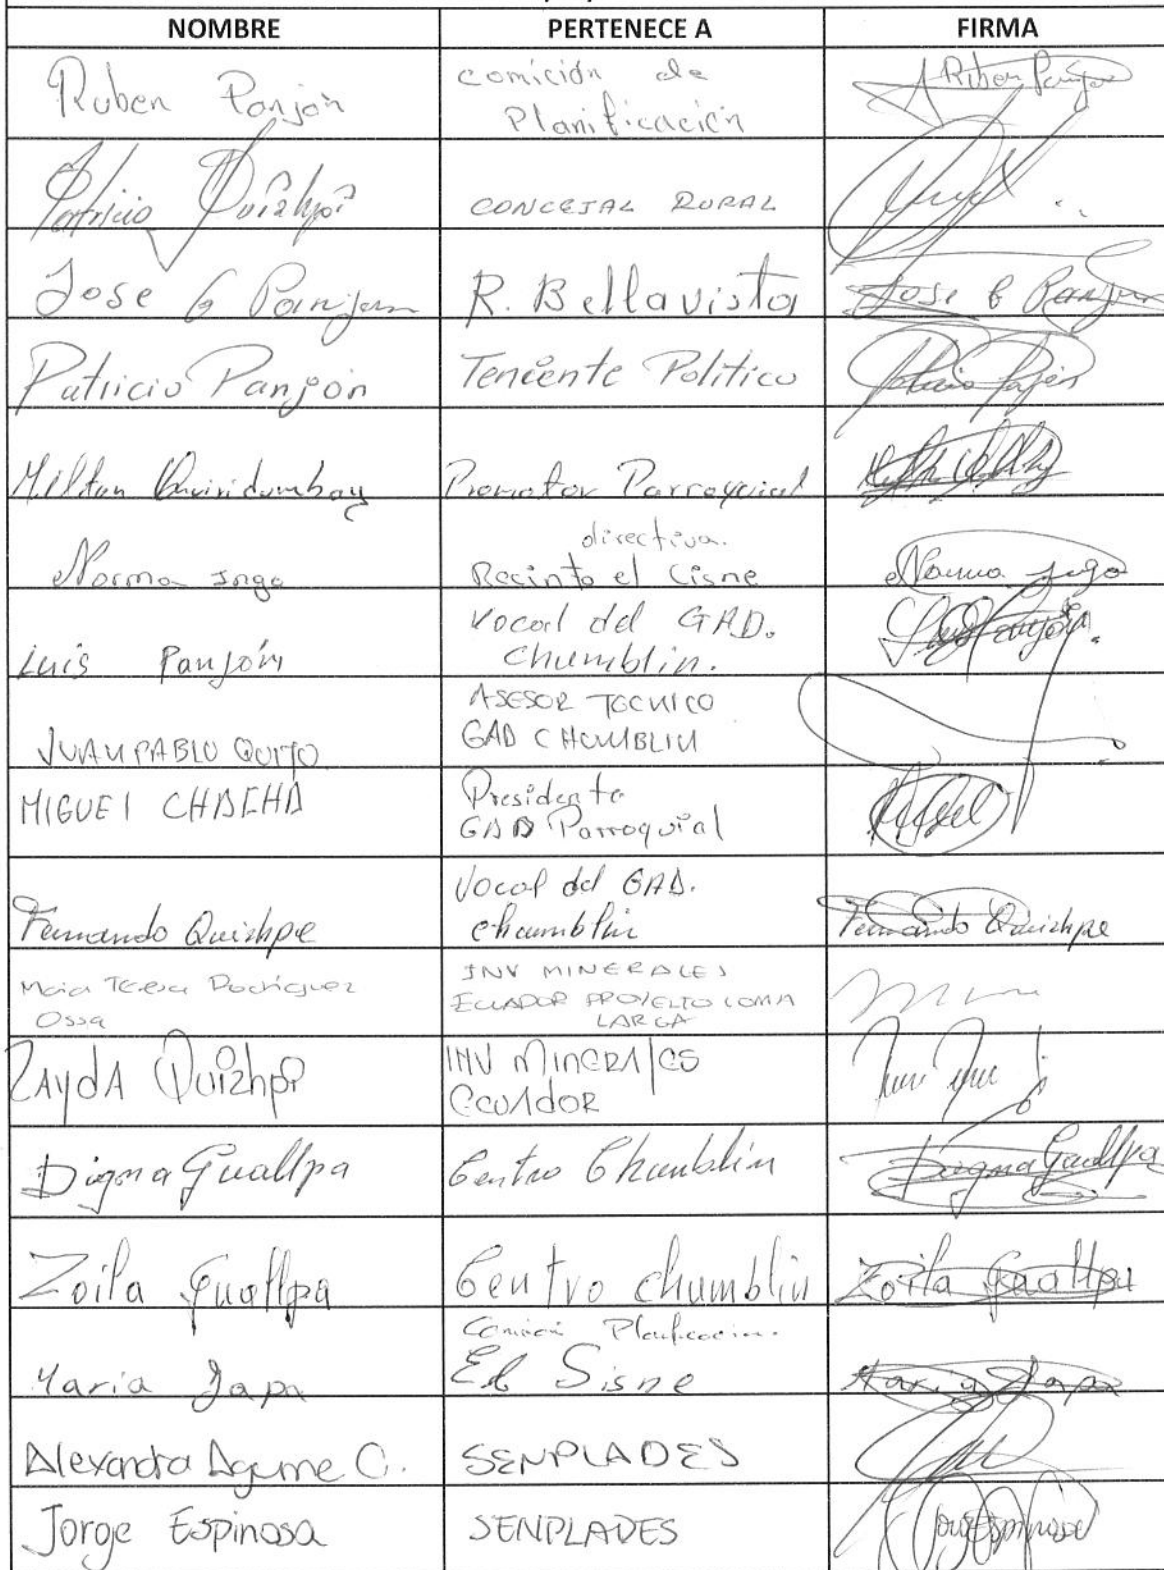 NOMBRE PERTENECE A FIRMA
Ruben Panjon comición de Planificación Ruben Panjon
Patricio Quizhpi CONCEJAL RURAL
Jose G Panjon R. Bellavista Jose G Panjon
Patricio Panjon Teniente Político
Milton Quiridumbay Promotor Parroquial
Norma Inga directiva. Recinto el Cisne Norma Inga
Luis Panjón Vocal del GAD. Chumblin. Luis Panjón
JUAN PABLO QUITO ASESOR TECNICO GAD CHUMBLIN
MIGUEL CHACHA Presidente GAD Parroquial
Fernando Quizhpe Vocal del GAD. Chumblin Fernando Quizhpe
Maia Teresa Rodriguez Ossa INV MINERALES ECUADOR PROYECTO LOMA LARGA
ZAYDA Quizhpi INV MINERALES ECUADOR
Digna Guallpa Centro Chumblin Digna Guallpa
Zoila Guallpa Centro chumblin Zoila Guallpa
Maria Japa Planificacion. El Sisne Maria Japa
Alexandra C. SENPLADES
Jorge Espinosa SENPLADES Jorge Espinosa